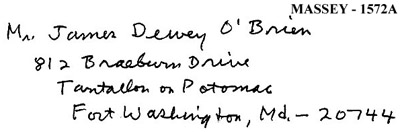 MASSEY - 1572A
Mr. James Dewey O'Brien
812 Braeburn Drive
Tantallon on Potomac
Fort Washington, Md. - 20744